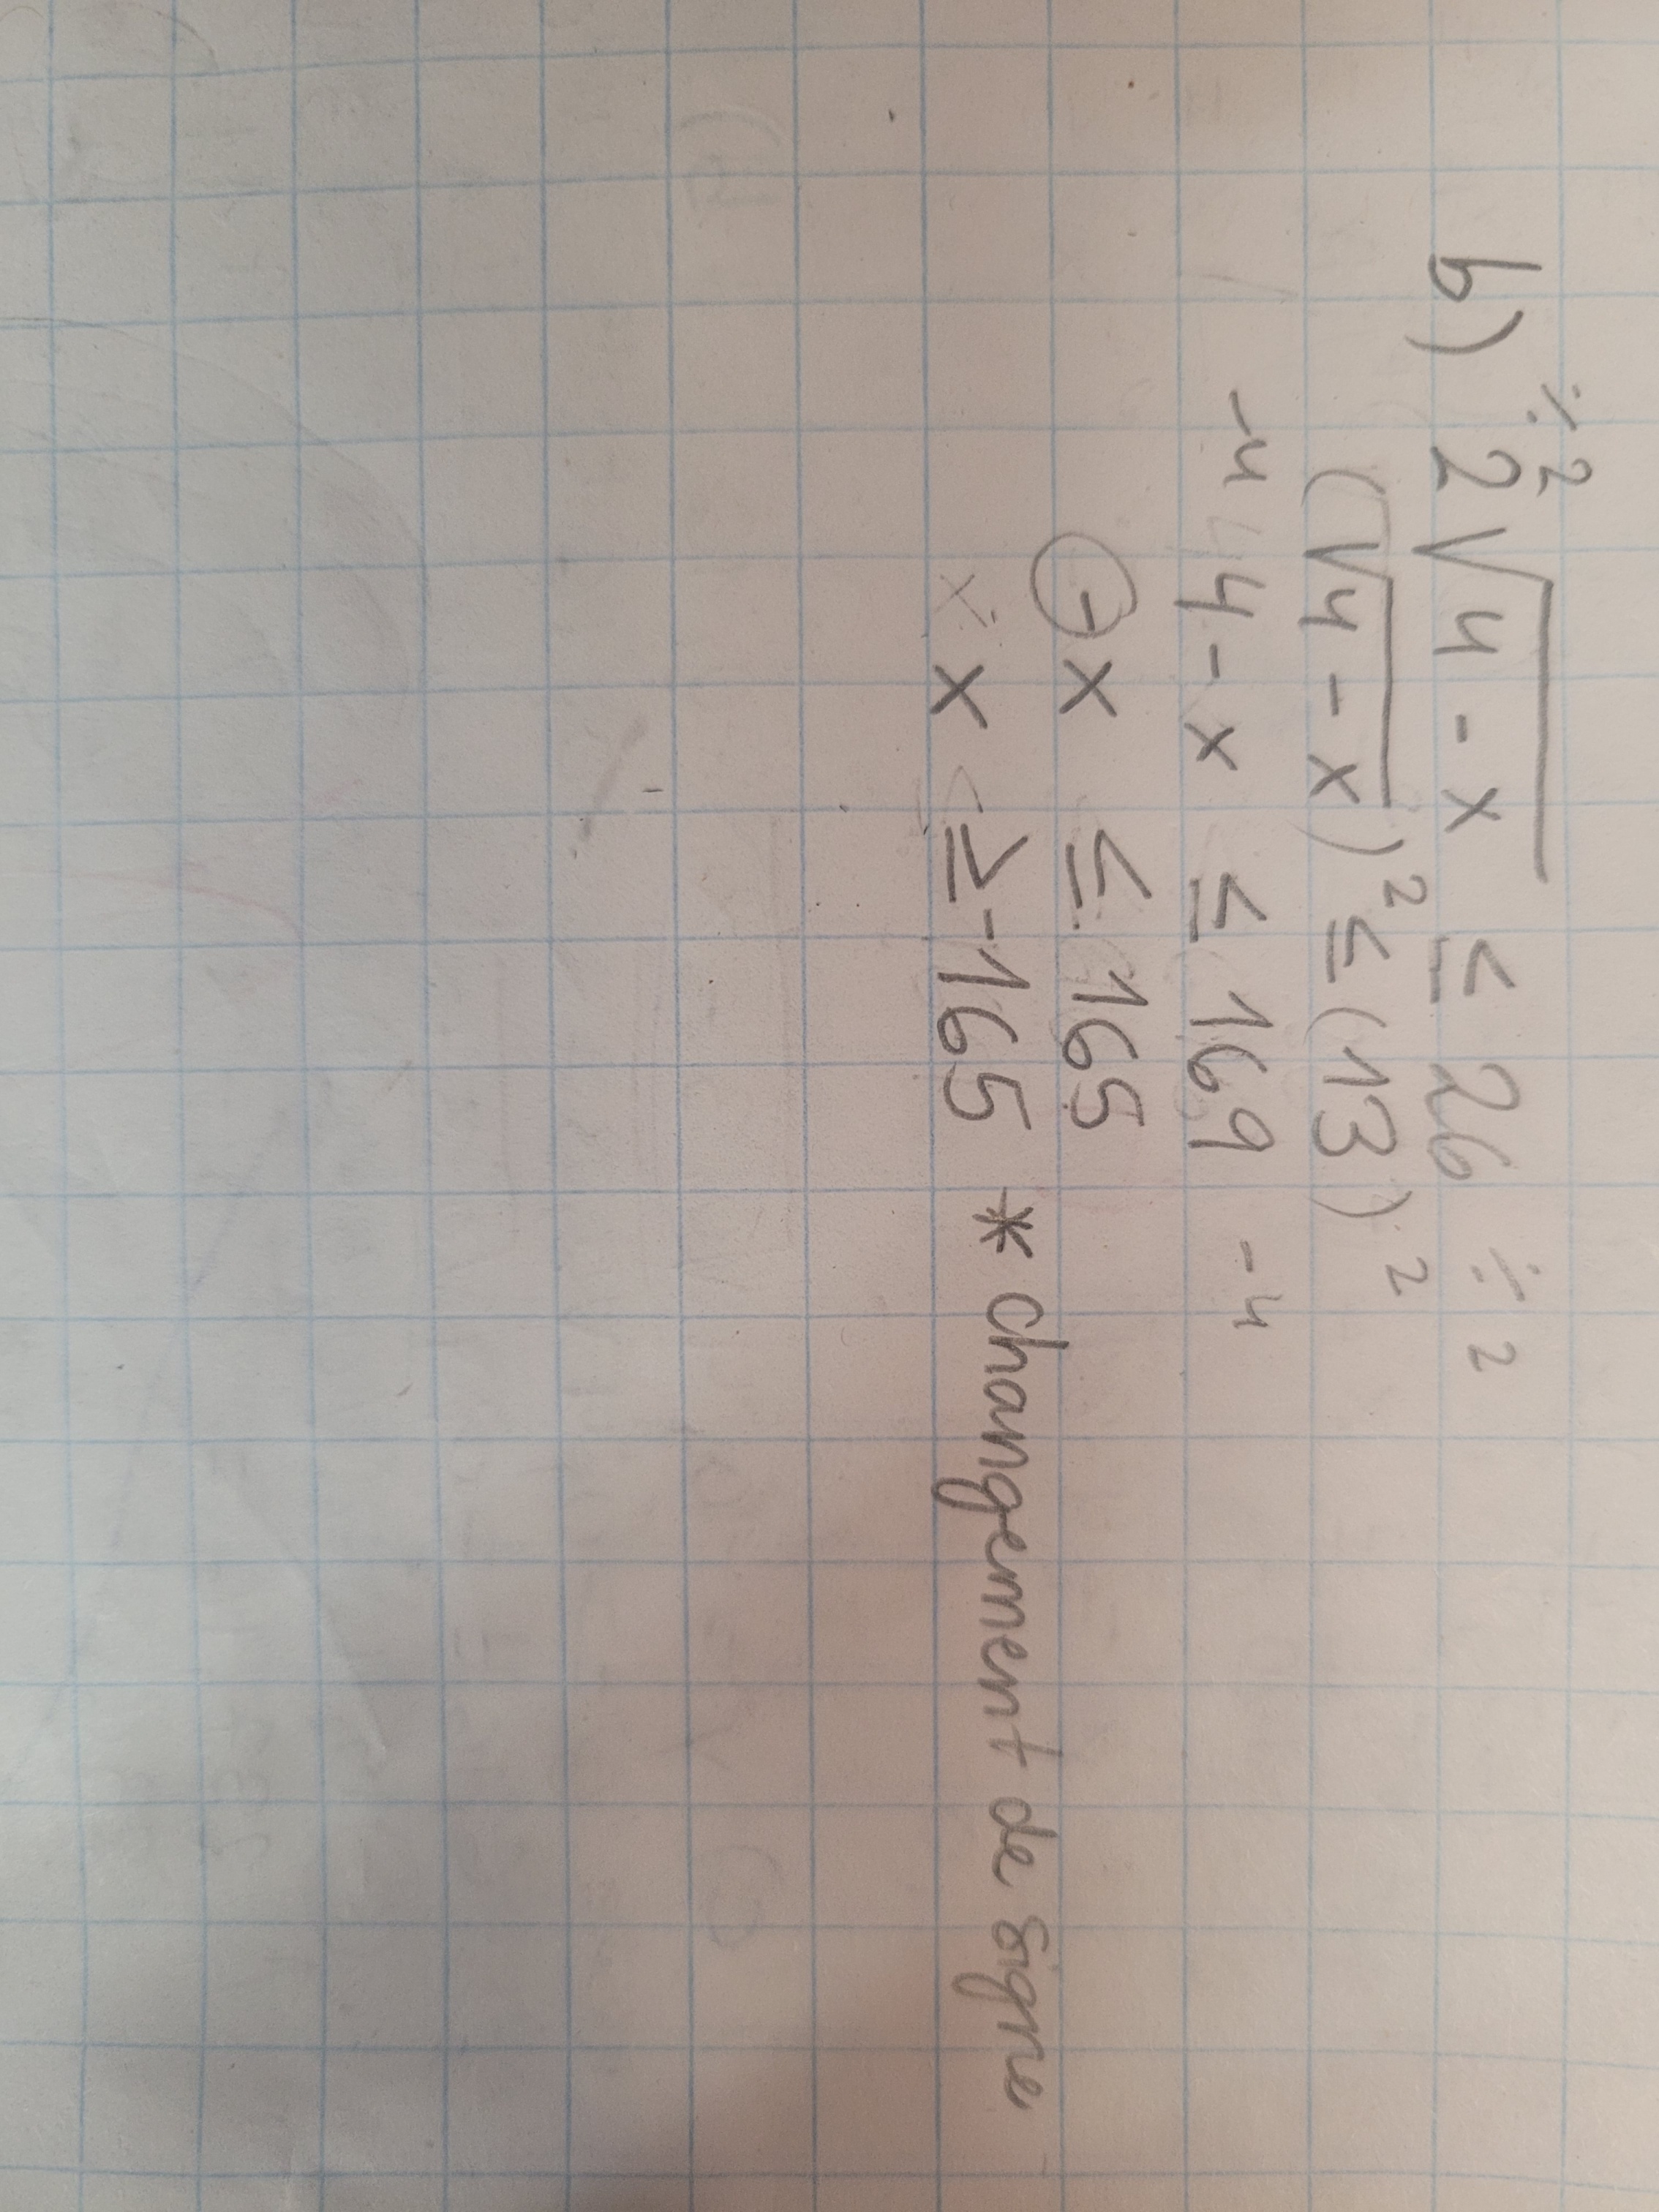 b) ÷2 2√(4 - x) ≤ 26 ÷2
(√(4 - x))² ≤ (13)²
-4 4 - x ≤ 169 -4
-x ≤ 165
x ≥ -165 * changement de signe